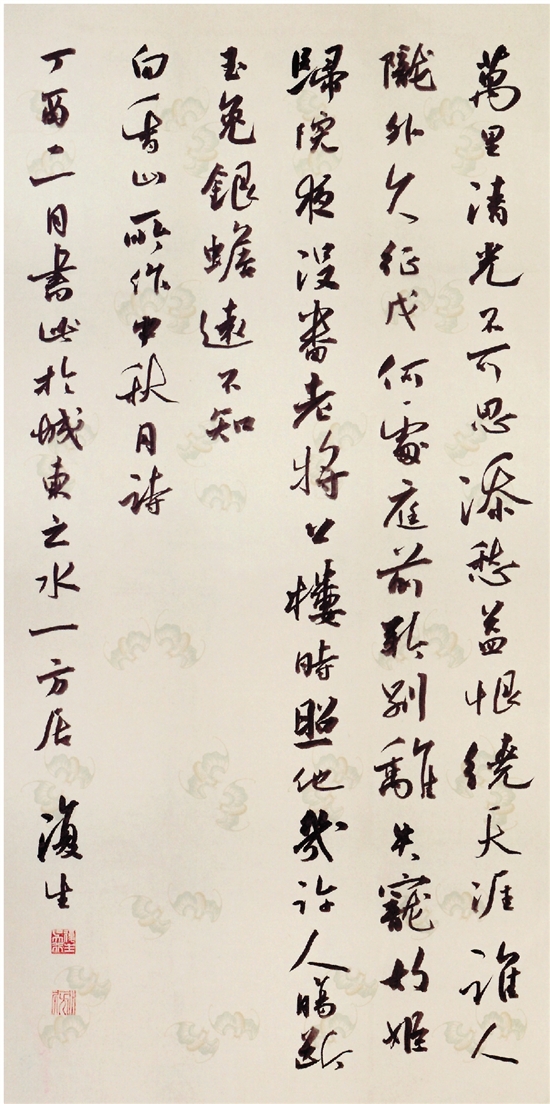 萬里清光不可思添愁益恨繞天涯誰人
隴外久征戍何處庭前新別離失寵故姬
歸院夜没蕃老將上樓時照他幾許人腸斷
玉兔銀蟾遠不知
白香山所作中秋月詩
丁酉二月書此於城東之水一方居 復生